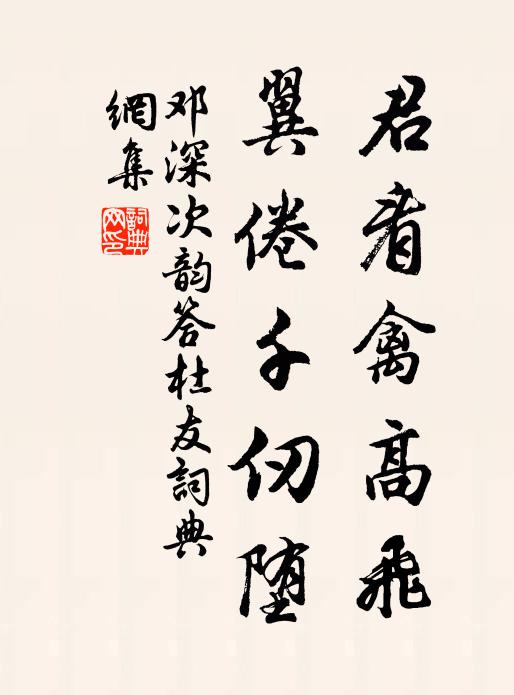 君看禽高飛
翼倦千仞堕
邓深次韵答杜友詞典
網集
詞典
网印